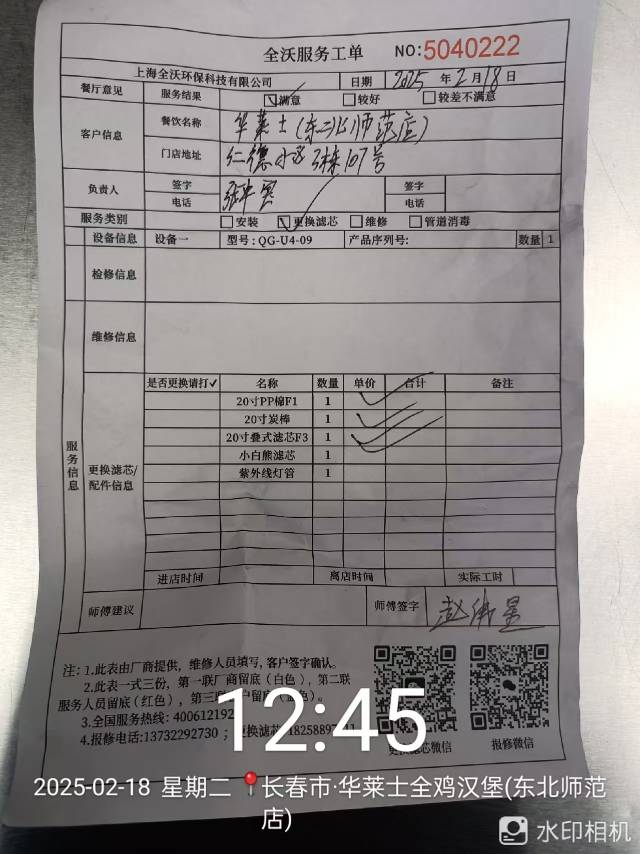 全沃服务工单 NO:5040222
上海全沃环保科技有限公司 日期 2025 年 2 月 18 日
餐厅意见 服务结果 满意 较好 较差不满意
客户信息 餐饮名称 华莱士(东北师范店)
门店地址 仁德 107号
负责人 签字 签字
电话 电话
服务类别 安装 更换滤芯 维修 管道消毒
设备信息 设备一 型号: QG-U4-09 产品序列号: 数量 1
检修信息
维修信息
服务信息
更换滤芯/配件信息
是否更换请打✓ 名称 数量 单价 合计 备注
20寸PP棉F1 1
20寸炭棒 1
20寸叠式滤芯F3 1
小白熊滤芯 1
紫外线灯管 1
进店时间 离店时间 实际工时
师傅建议 师傅签字 赵伟星
注: 1.此表由厂商提供, 维修人员填写, 客户签字确认。
2.此表一式三份, 第一联厂商留底 (白色), 第二联
服务人员留底 (红色), 第三
3.全国服务热线: 400612192
4.报修电话:13732292730 ; 更换滤芯
更换滤芯微信 报修微信
12:45
2025-02-18 星期二 长春市·华莱士全鸡汉堡(东北师范
店)
水印相机